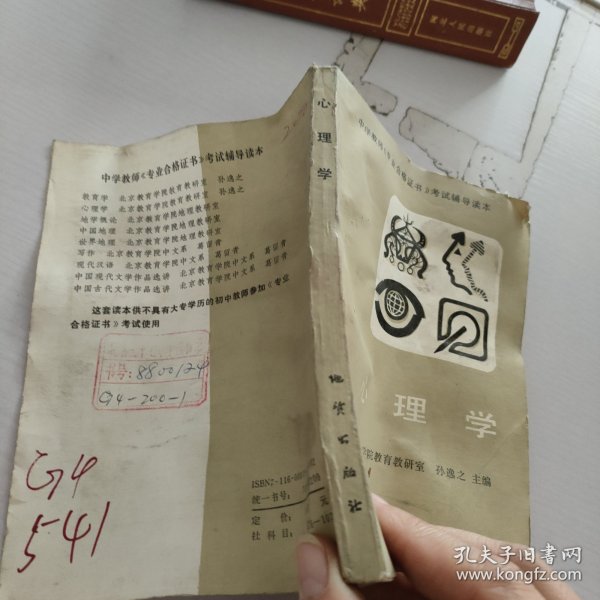 中学教师《专业合格证书》考试辅导读本
教育学 北京教育学院教育教研室 孙逸之
心理学 北京教育学院教育教研室 孙逸之
地学概论 北京教育学院地理教研室
中国地理 北京教育学院地理教研室
世界地理 北京教育学院地理教研室
写作 北京教育学院中文系 葛留青
现代汉语 北京教育学院中文系 葛留青
中国现代文学作品选讲 北京教育学院中文系 葛留青
中国古代文学作品选讲 北京教育学院中文系 葛留青
这套读本供不具有大专学历的初中教师参加《专业
合格证书》考试使用
书号: 8800124
G4-200-1
G4
541
ISBN7-116-00
统一书号:
定 价: 元
社科目:
心理学
地质出版社
中学教师《专业合格证书》考试辅导读本
理学
院教育教研室 孙逸之 主编
孔夫子旧书网
www.kongfz.com